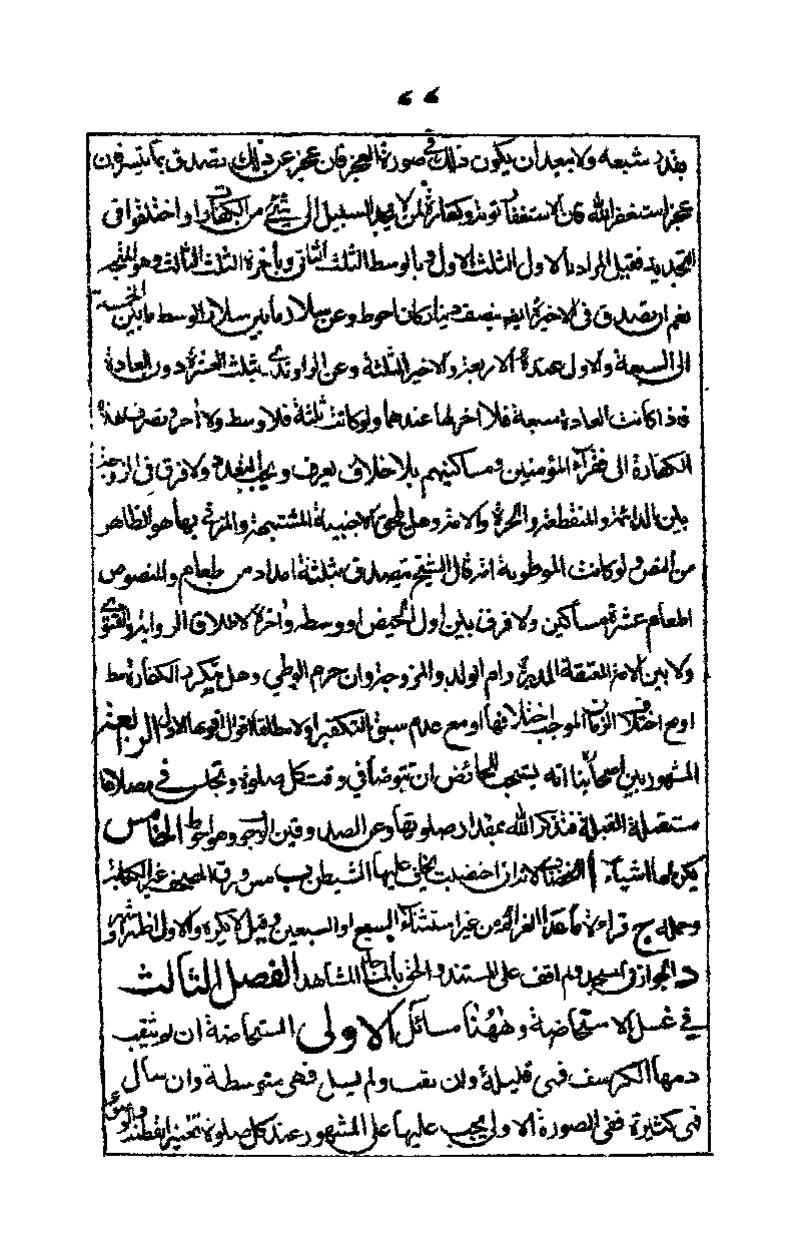 ٦٦
بقدر شبعه ولا يبعد ان يكون ذلك في صورة العجز فان عجز عن ذلك تصدق بما تيسر فان
عجز استغفر الله فان الاستغفار توبة وكفارة لمن لا يجد السبيل الى شئ من الكفارة واختلفوا في
التحديد فقيل المراد بالاول الثلث الاول وبالوسط الثلث الثاني وبآخره الثلث الثالث وهو
نعم ان تصدق في الاخير ايضا بنصف دينار كان احوط وعن سلار الوسط ما بين الخمسة
الى السبعة والاول عنده الاربعة والاخير الثلثة وعن الراوندي بثلث العشرة دون العادة
فاذا كانت العادة سبعة فلا اخر لها عندهما ولو كانت ثلثة فلا وسط ولا آخر ومصرف هذه
الكفارة الى فقراء المؤمنين ومساكينهم بلا خلاف يعرف ولا فرق في الزوجة
بين الدائمة والمنقطعة والحرة والامة وهل تلحق الاجنبية المشتبهة والمزني بها هو الظاهر
من النص ولو كانت الموطوءة امته قال الشيخ يتصدق بثلثة امداد من طعام والمنصوص
اطعام عشرة مساكين ولا فرق بين اول الحيض او وسطه وآخره لاطلاق الرواية والفتوى
ولا بين الامة المعتقة المدبرة وام الولد والمزوجة وان حرم الوطي وهل تتكرر الكفارة مط
او مع اختلاف الزمان الموجب اختلافها او مع عدم سبق التكفير او لا مطلقا اقوال اقويها الاول الرابعة
المشهور بين اصحابنا انه يستحب للحائض ان تتوضأ في وقت كل صلوة وتجلس في مصلاها
مستقبلة القبلة فتذكر الله بمقدار صلوتها وعن الصدوقين الوجوب وهو احوط الخامس
يكره لها اشياء ا الخضاب لانها ان اختضبت يخاف عليها الشيطان ب مس ورق المصحف غير الكتابة
وحمله ج قراءة ما عدا العزائم من غير استثناء السبع او السبعين وقيل لا يكره والاول اظهر واشهر
د الجواز في المسجد ولم اقف على المستند والحق بالمساجد المشاهد الفصل الثالث
في غسل الاستحاضة وههنا مسائل الاولى المستحاضة ان لم يثقب
دمها الكرسف فهي قليلة وان ثقب ولم يسل فهي متوسطة وان سال
فهي كثيرة ففي الصورة الاولى يجب عليها على المشهور عند كل صلوة تغيير القطنة والوضوء